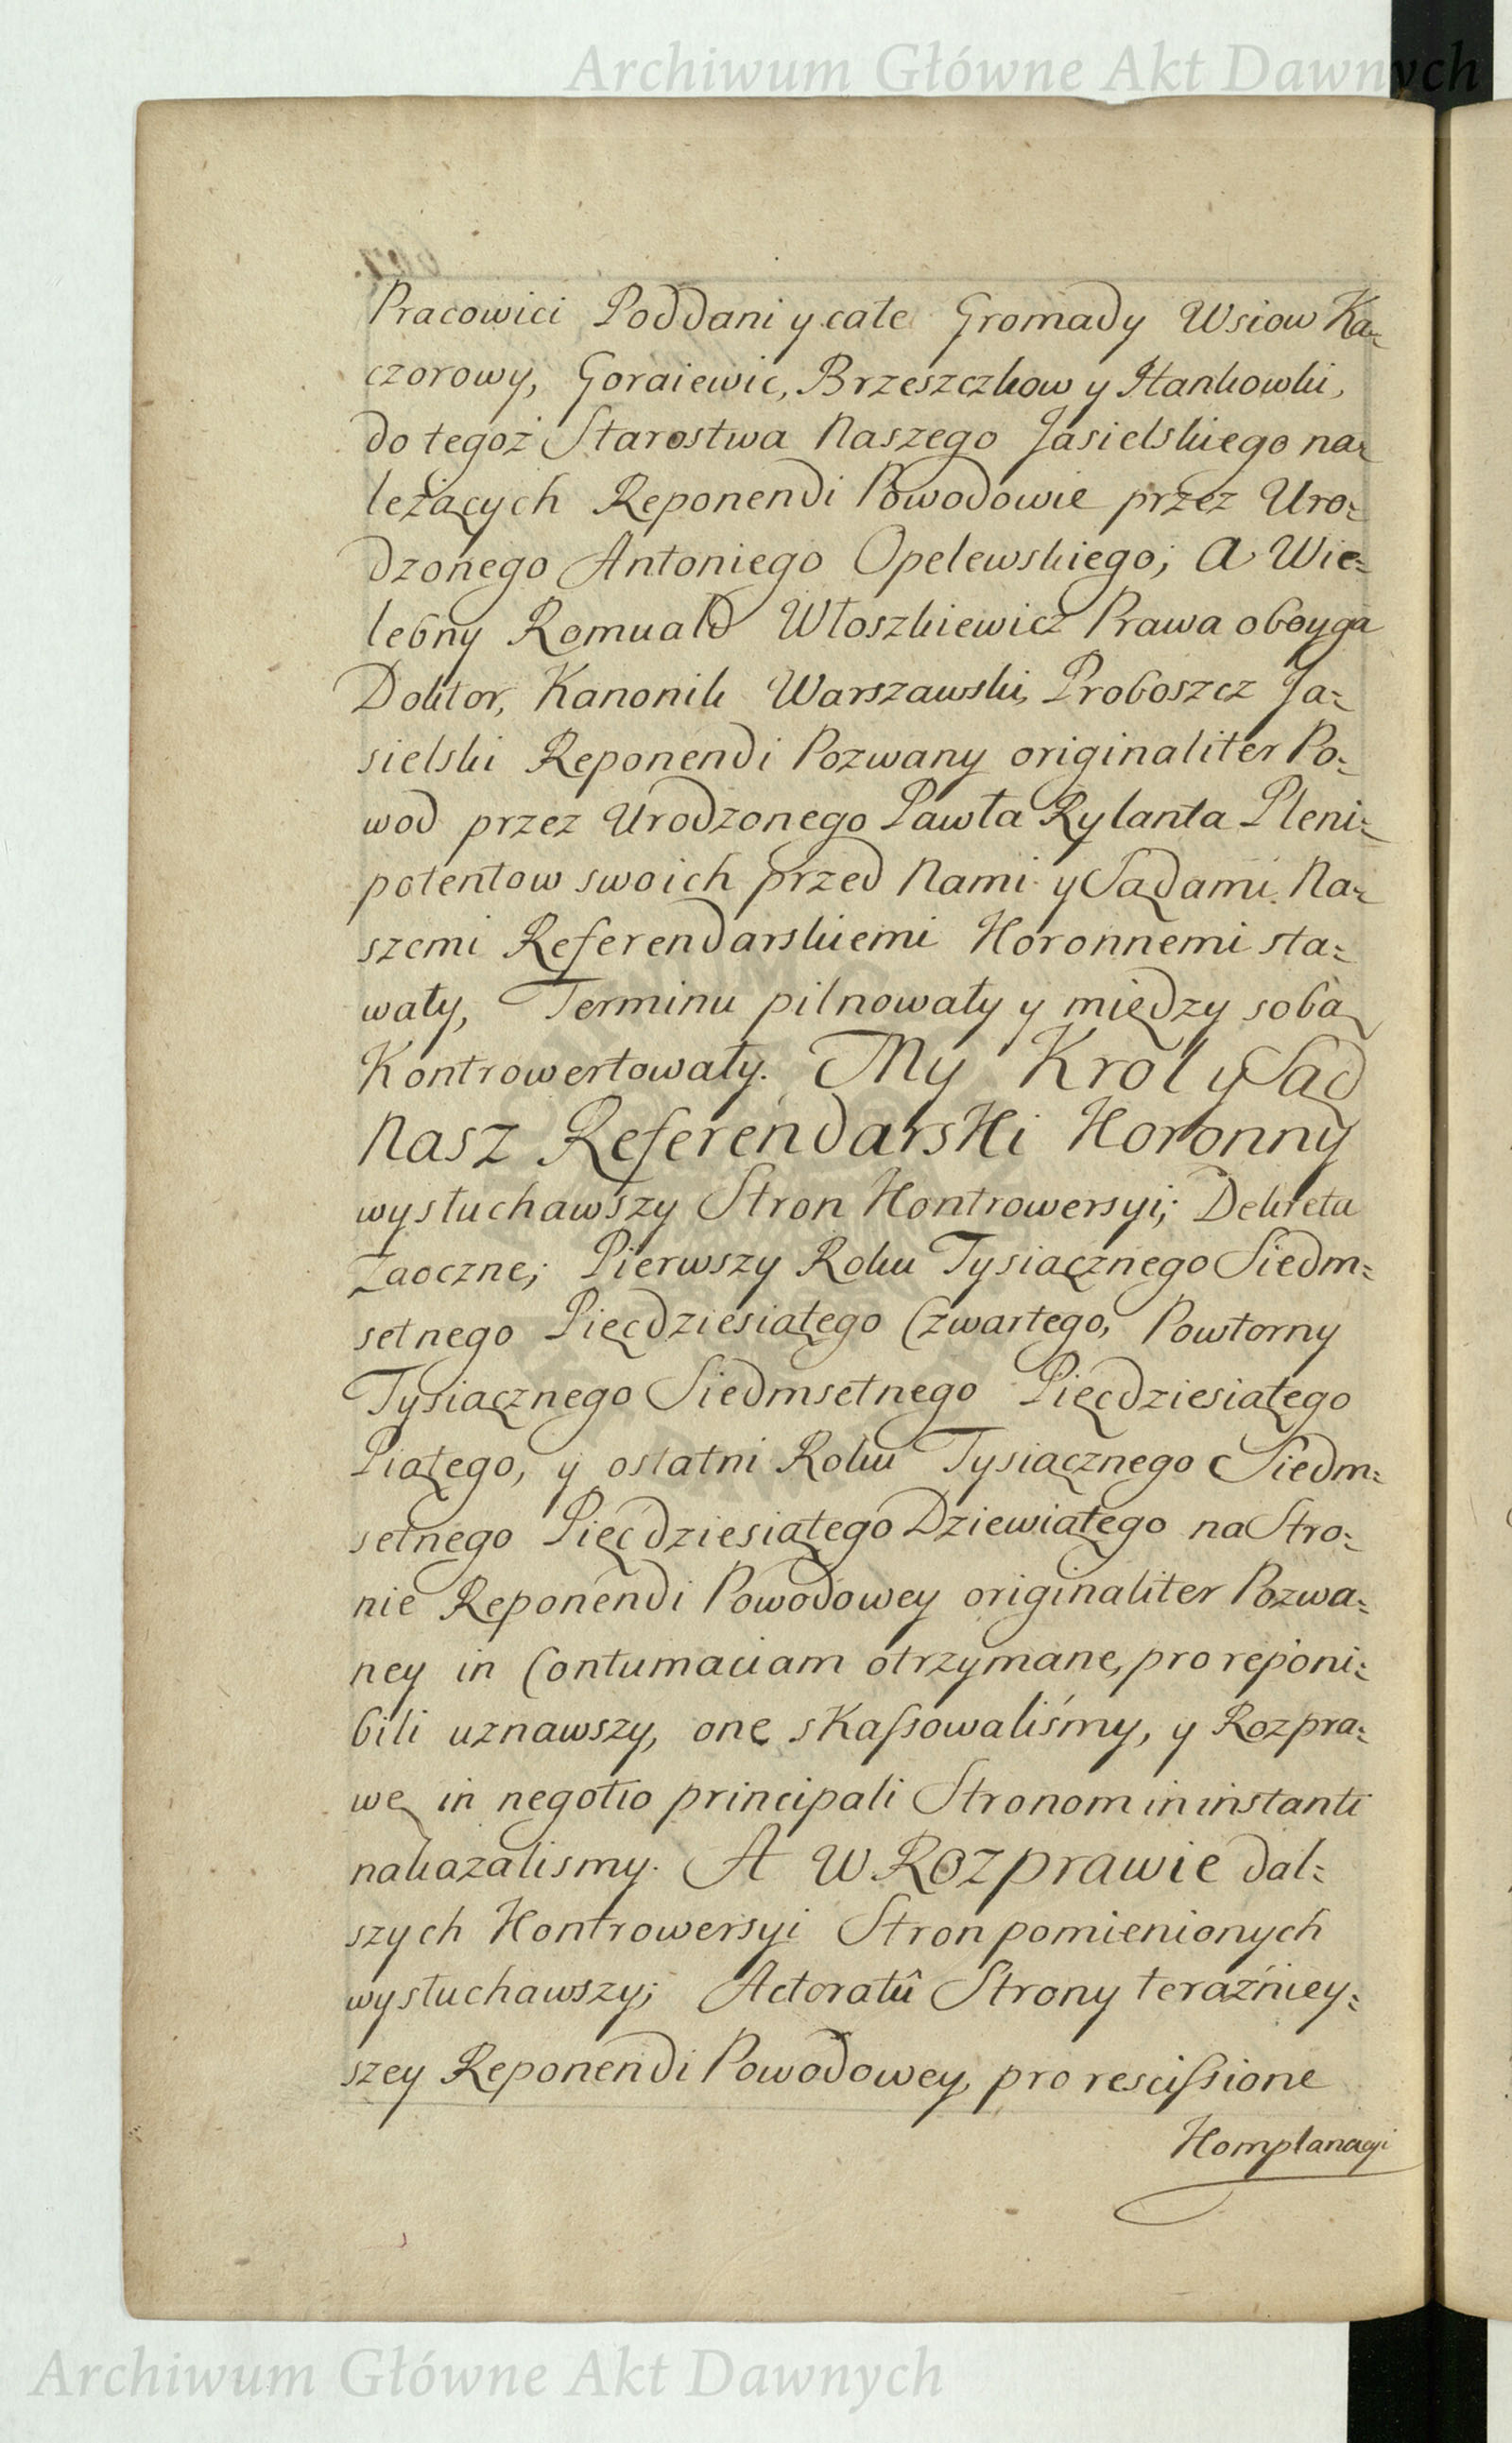 Archiwum Główne Akt Dawnych
Pracowici Poddani y całe Gromady Wsiow Ka-
czorowy, Goraiewic, Brzeszczkow y Hankowki,
do tegoż Starostwa Naszego Jasielskiego na-
leżących Reponendi Powodowie przez Uro-
dzonego Antoniego Opelewskiego; A Wie-
lebny Romuald Włoszkiewicz Prawa oboyga
Doktor, Kanonik Warszawski, Proboszcz Ja-
sielski Reponendi Pozwany originaliter Po-
wod przez Urodzonego Pawła Rylanta Pleni-
potentow swoich przed Nami y Sądami Na-
szemi Referendarskiemi Koronnemi sta-
wały, Terminu pilnowały y między sobą
Kontrowertowały. My Krol y Sąd
Nasz Referendarski Koronny
wysłuchawszy Stron Kontrowersyi; Dekreta
Zaoczne; Pierwszy Roku Tysiącznego Siedm-
setnego Pięćdziesiątego Czwartego, Powtorny
Tysiącznego Siedmsetnego Pięćdziesiątego
Piątego, y ostatni Roku Tysiącznego Siedm-
setnego Pięćdziesiątego Dziewiątego na Stro-
nie Reponendi Powodowey originaliter Pozwa-
ney in Contumaciam otrzymane, pro reponi-
bili uznawszy, one skassowaliśmy, y Rozpra-
wę in negotio principali Stronom in instanti
nakazalismy. A W Rozprawie dal-
szych Kontrowersyi Stron pomienionych
wysłuchawszy; Actoratû Strony teraźniey-
szey Reponendi Powodowey, pro rescissione
Komplanacyi
Archiwum Główne Akt Dawnych